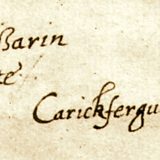 Barin
te.
Carickfergu